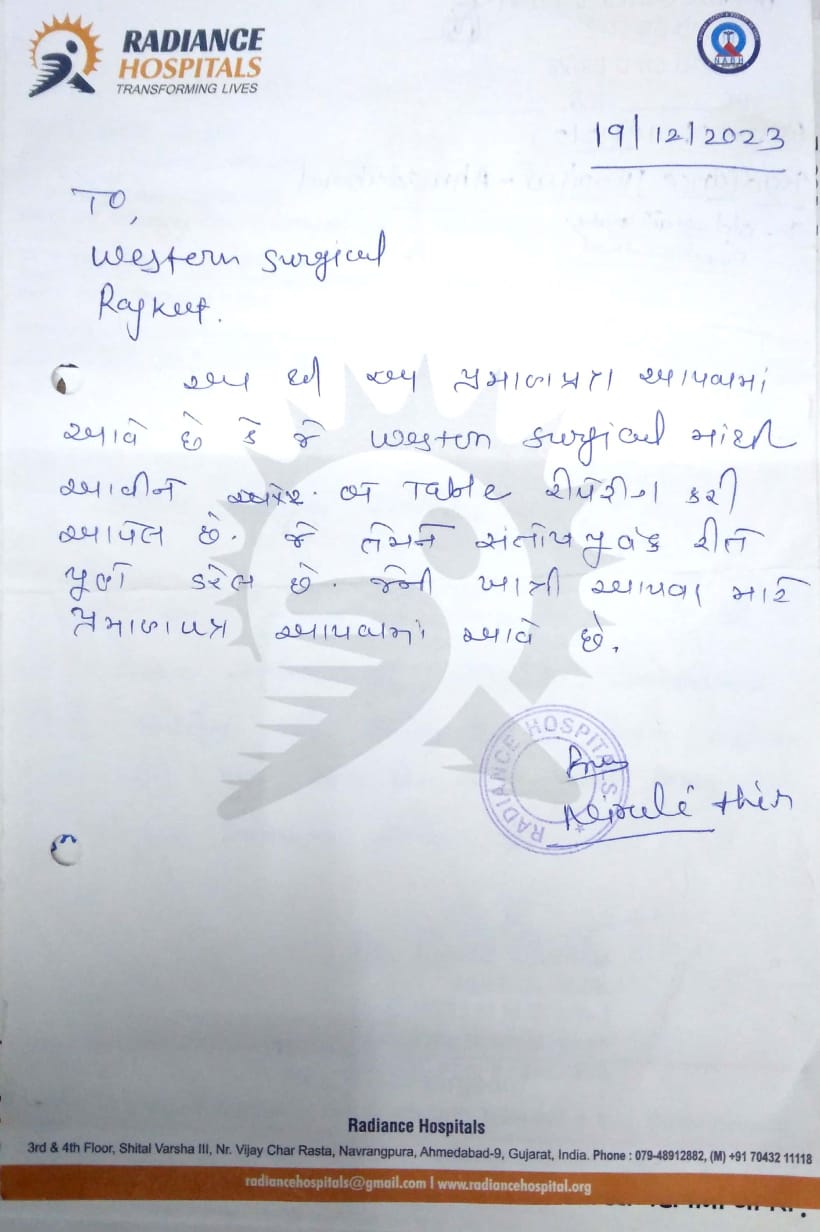 RADIANCE
HOSPITALS
TRANSFORMING LIVES
NABH
19/12/2023
TO,
Western Surgical
Rajkot.
આ પ્રમાણપત્ર આપવામાં
આવે છે કે જે Western Surgical માંથી
આવીને Table રીપેરીંગ કરી
આપેલ છે. જે તેમને સંતોષ પુર્વક રીતે
પુર્ણ કરેલ છે. જેની ખાત્રી આપવા માટે
પ્રમાણપત્ર આપવામાં આવે છે.
RADIANCE HOSPITALS
Radiance Hospitals
3rd & 4th Floor, Shital Varsha III, Nr. Vijay Char Rasta, Navrangpura, Ahmedabad-9, Gujarat, India. Phone : 079-48912882, (M) +91 70432 11118
radiancehospitals@gmail.com | www.radiancehospital.org